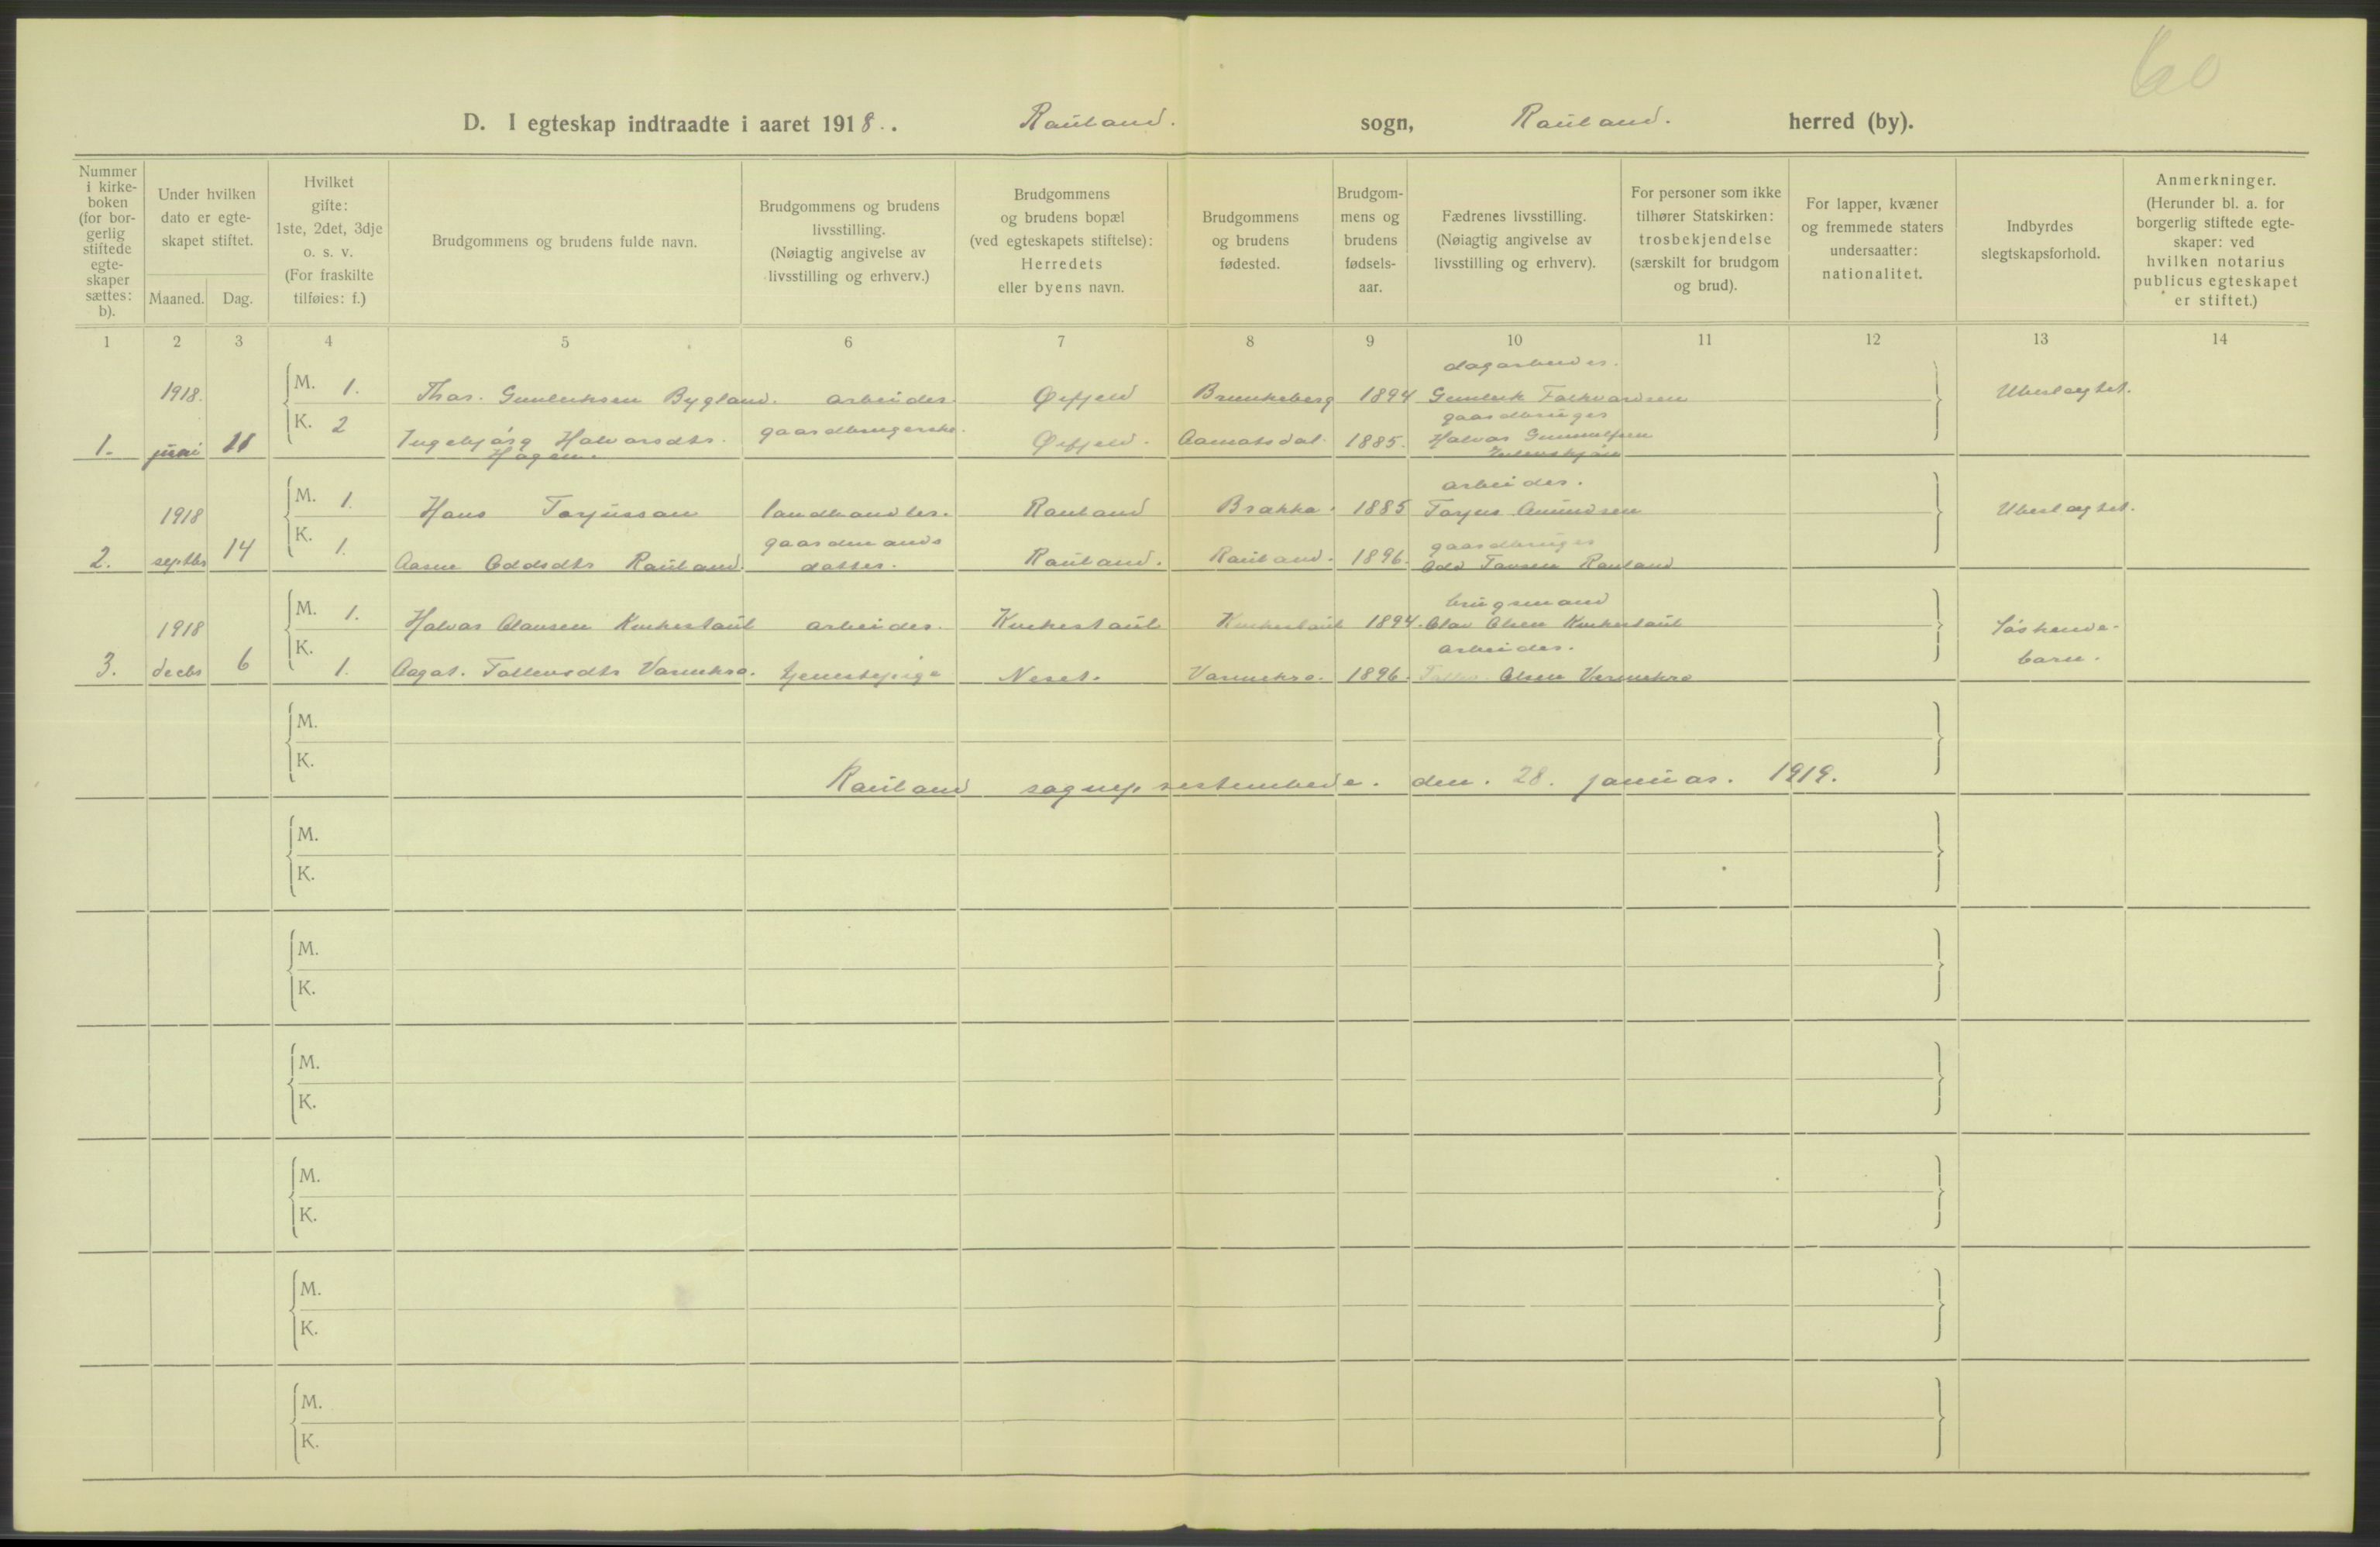 60
D. I egteskap indtraadte i aaret 1918. Rauland. sogn, Rauland. herred (by).
Nummer i kirke-boken (for bor-gerlig stiftede egte-skaper sættes: b).
Under hvilken dato er egte-skapet stiftet.
Maaned. Dag.
Hvilket gifte: 1ste, 2det, 3dje o. s. v. (For fraskilte tilføies: f.)
Brudgommens og brudens fulde navn.
Brudgommens og brudens livsstilling. (Nøiagtig angivelse av livsstilling og erhverv.)
Brudgommens og brudens bopæl (ved egteskapets stiftelse): Herredets eller byens navn.
Brudgommens og brudens fødested.
Brudgom-mens og brudens fødsels-aar.
Fædrenes livsstilling. (Nøiagtig angivelse av livsstilling og erhverv).
For personer som ikke tilhører Statskirken: trosbekjendelse (særskilt for brudgom og brud).
For lapper, kvæner og fremmede staters undersaatter: nationalitet.
Indbyrdes slegtskapsforhold.
Anmerkninger. (Herunder bl. a. for borgerlig stiftede egte-skaper: ved hvilken notarius publicus egteskapet er stiftet.)
1 2 3 4 5 6 7 8 9 10 11 12 13 14
dagarbeider.
1918. M. 1. Thor. Gunleiksen Bygland. arbeider. Øifjeld Brunkeberg 1894 Gunleik Folkvardsen Ubeslagtet.
gaardbruger
1. juni 11 K. 2 Ingebjørg Halvorsdtr. gaardbrugerske. Øifjeld. Aamotsdal. 1885. Halvor
Haagen.
arbeider.
1918 M. 1. Hans Tarjussøn landhandler. Rauland Brokke. 1885 Tarjus Amundsen Ubeslagtet.
gaardmands gaardbruger
2. septbr 14 K. 1. Aasne Oddsdtr Rauland. datter. Rauland. Rauland. 1896. Odd Tovsen Rauland
brugsmand
1918 M. 1. Halvor Olavsen Kvikestaul arbeider. Kvikestaul Kvikestaul 1894. Olav Olsen Kvikestaul Søskende-
arbeider. barn.
3. decbr 6 K. 1. Aagot. Tallevsdtr Varmekro. tjenestepige Neset. Varmekro. 1896. Olsen Varmekro
M.
K.
Rauland sogneprestembede. den. 28. januar. 1919.
M.
K.
M.
K.
M.
K.
M.
K.
M.
K.
M.
K.